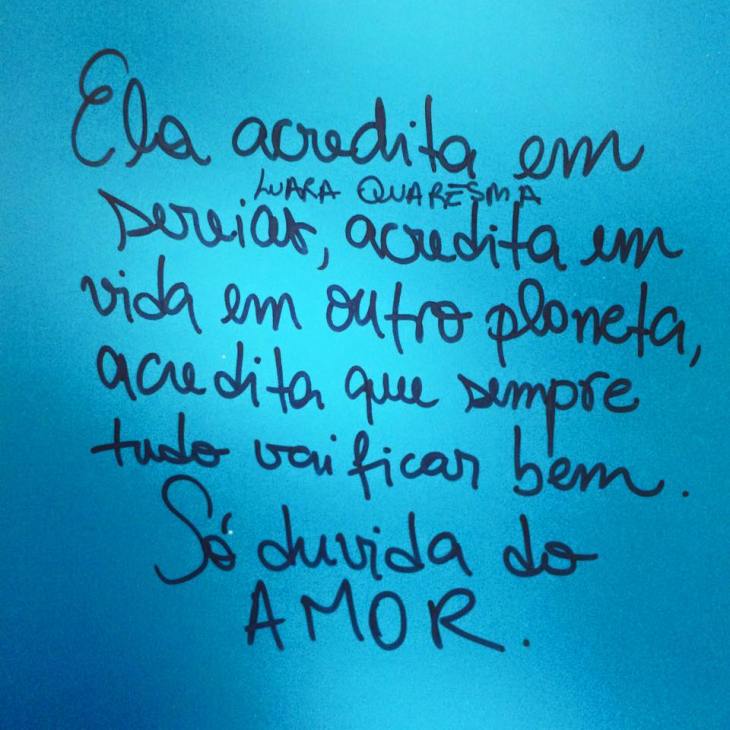 Ela acredita em
LUARA QUARESMA
sereias, acredita em
vida em outro planeta,
acredita que sempre
tudo vai ficar bem.
Só duvida do
AMOR.